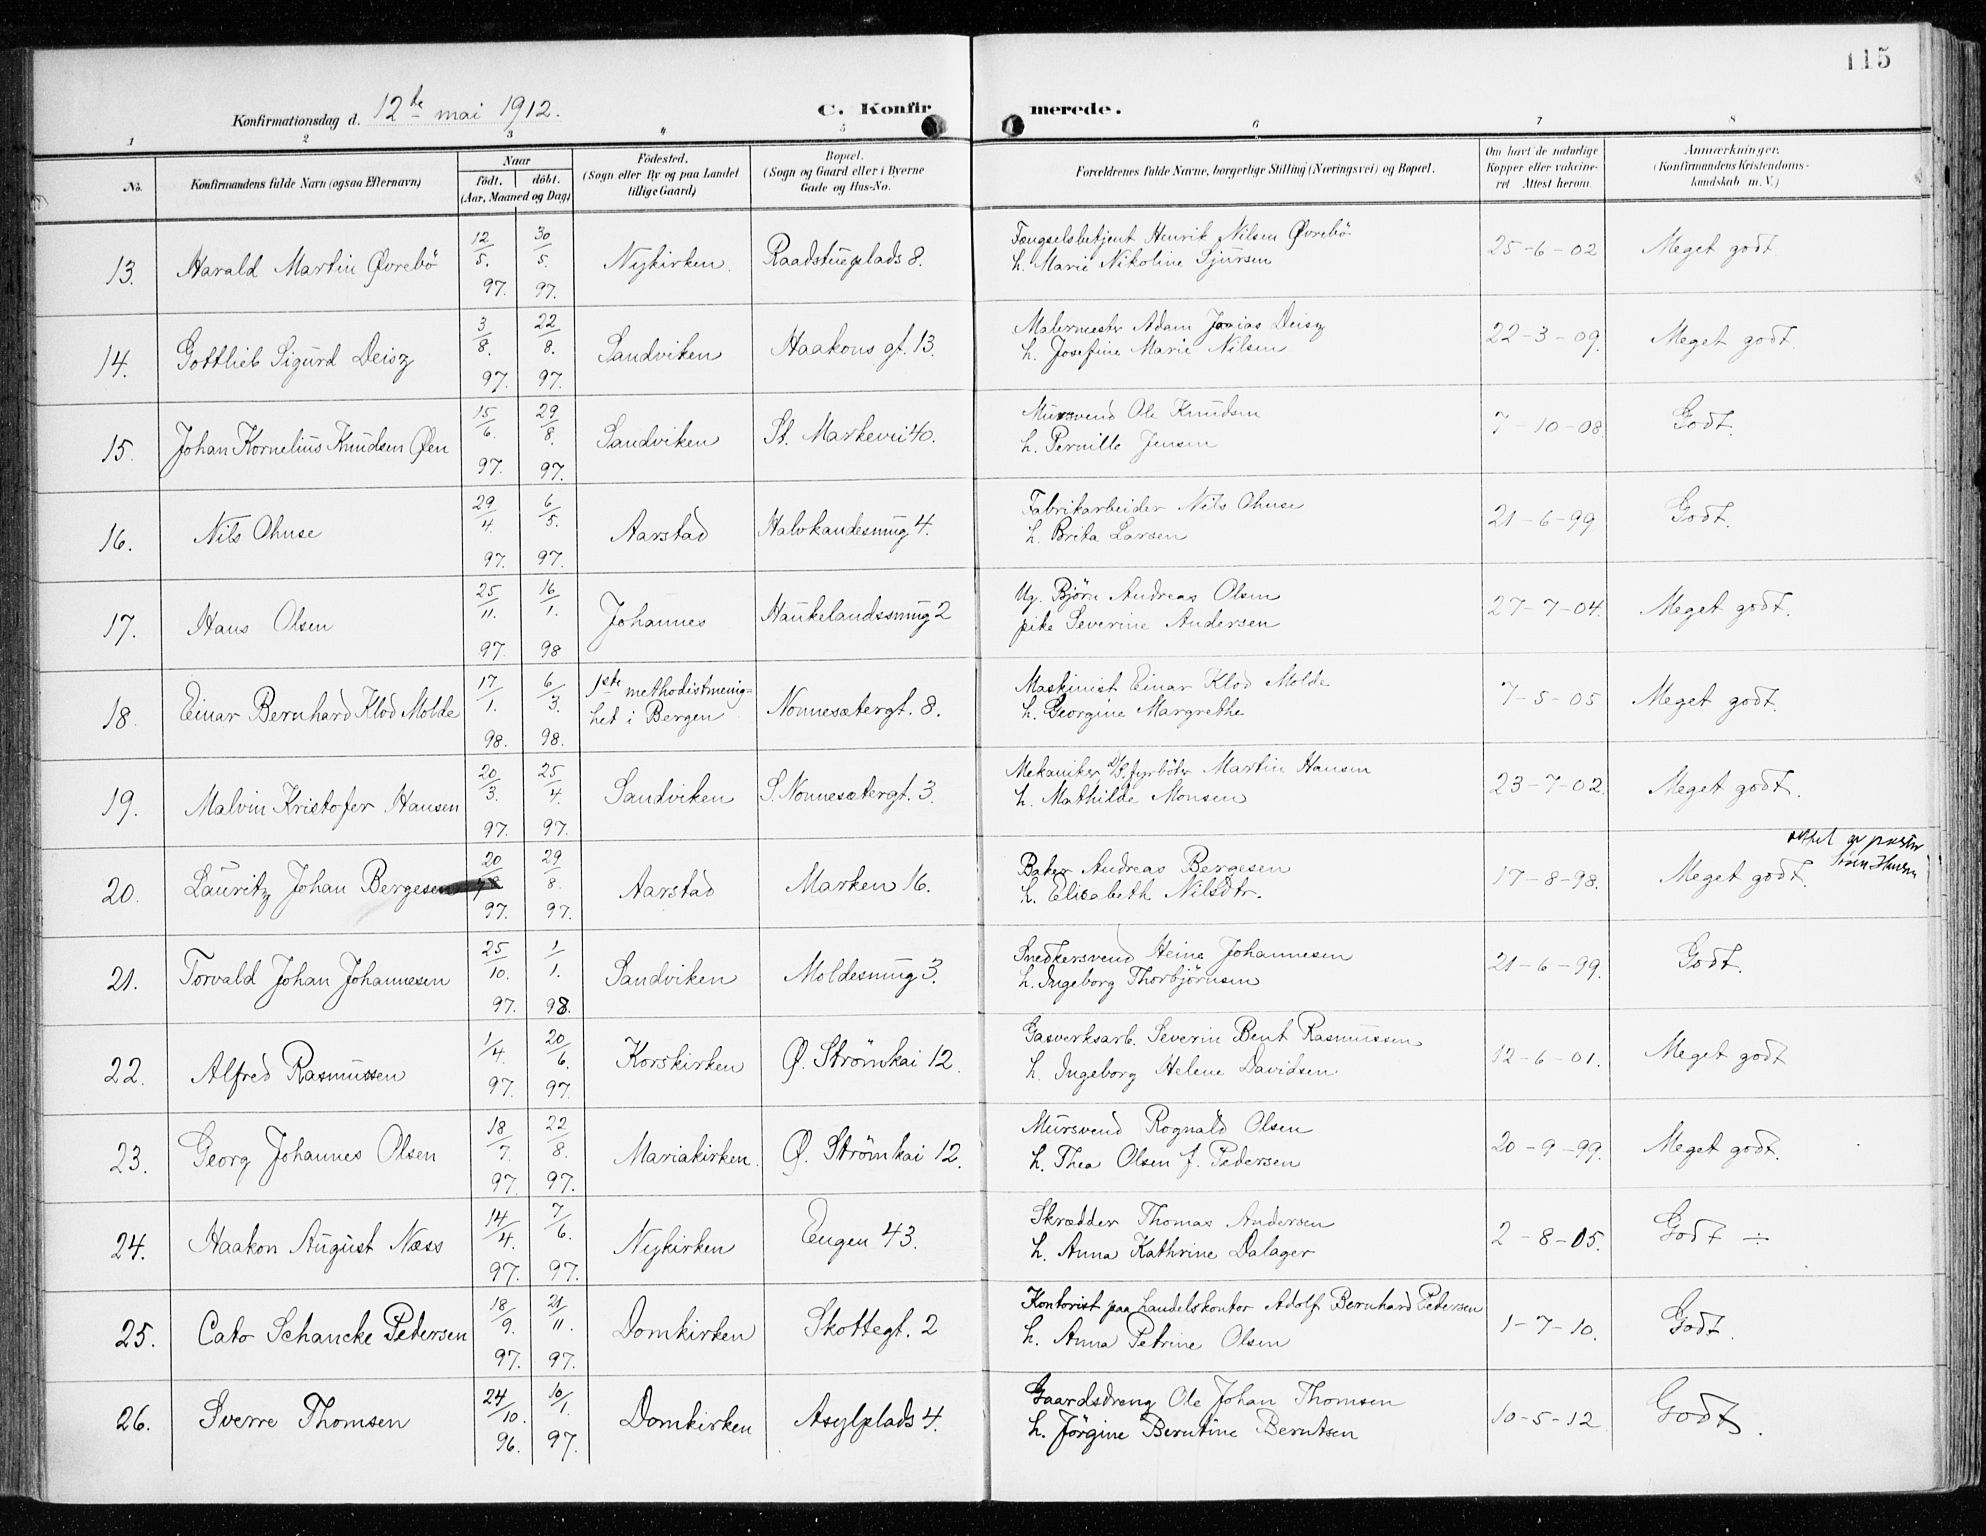 115
Konfirmationsdag d. 12te mai 1912. C. Konfirmerede.
1 2 3 4 5 6 7 8
No. Konfirmandens fulde Navn (ogsaa Efternavn) Naar født, døbt. (Aar, Maaned og Dag) Fødested. (Sogn eller By og paa Landet tillige Gaard) Bopæl. (Sogn og Gaard eller i Byerne Gade og Hus-No. Forældrenes fulde Navne, borgerlige Stilling (Næringsvei) og Bopæl. Om havt de naturlige Kopper eller vakcineret. Attest herom. Anmærkninger. (Konfirmandens Kristendomskundskab m. V.)
13. Harald Martin Øvrebö 12/5. 97. 30/5. 97. Nykirken. Raadstueplads 8. Fængselsbetjent Henrik Nilsen Øvrebö 25-6-02 Meget godt.
h. Marie Nikoline Sjursen
14. Gottlieb Sigurd Deisz 3/8. 97. 22/8. 97. Sandviken Haakons gt. 13. Malermester Adam Deisz 22-3-09. Meget godt.
h. Josefine Marie Nilsen
15. Johan Kornelius Knudsen Øen 15/6. 97. 29/8. 97. Sandviken St. Markevei 40. Mursvend Ole Knudsen 7-10-08 Godt.
h. Pernille Jensen
16. Nils Ohnse 29/4. 97. 6/5. 97. Aarstad Halvkandesmug 4. Fabrikarbeider Nils Ohnse 21-6-99 Godt.
h. Brita Larsen
17. Hans Olsen 25/11. 97. 16/1. 98 Johannes Haukelandssmug 2 Ug. Bjørn Andreas Olsen 27-7-04. Meget godt.
pike Severine Andersen
18. Einar Bernhard Klod Molde 17/1. 98. 6/3. 98. 1ste methodistmenig= Nonnesætergt. 8. Maskinist Einar Klod Molde 7-5-05 Meget godt.
het i Bergen h. Georgine Margrethe
19. Malvin Kristofer Hansen 20/3. 97. 25/4. 97. Sandviken S. Nonnesætergt. 3. Mekaniker d/S. fyrböter Martin Hansen 23-7-02. Meget godt.
h. Mathilde Monsen
20. Lauritz Johan Bergesen 20/7 97. 29/8. 97. Aarstad Marken 16. Baker Andreas Bergesen 17-8-98. Meget godt.
h. Elisabeth Nilsdtr.
21. Torvald Johan Johannesen 25/10. 97. 1/1. 98. Sandviken Moldesmug 3. Snedkersvend Heine Johannesen 21-6-99. Godt.
h. Ingeborg Thorbjörnsen
22. Alfred Rasmussen 1/4. 97. 20/6. 97. Korskirken Ø. Strömkai 12. Gasverksarb. Severin Bent Rasmussen 12-6-01. Meget godt
h. Ingeborg Helene Davidsen
23. Georg Johannes Olsen 18/7. 97. 22/8. 97. Mariakirken. Ø. Strömkai 12. Mursvend Rognald Olsen 20-9-99. Meget godt.
h. Thea Olsen f. Pedersen
24. Haakon August Næss 14/4. 97. 7/6. 97. Nykirken Engen 43. Skrædder Thomas Andersen 2-8-05. Godt ÷
h. Anna Kathrine Dalager
25. Cato Schancke Pedersen 18/9. 97. 21/11. 97. Domkirken Skottegt. 2 Kontorist paa handelskontor Adolf Bernhard Petersen 1-7-10. Godt.
h. Anna Petrine Olsen
26. Sverre Thomsen 24/10. 96. 10/1. 97. Domkirken Asylplads 4. Gaardsdreng Ole Johan Thomsen 10-5-12 Godt.
h. Jörgine Berntine Berntsen